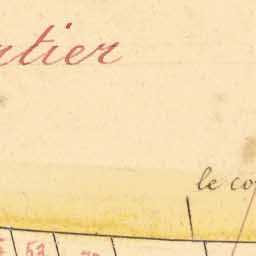 rtier
le co
53